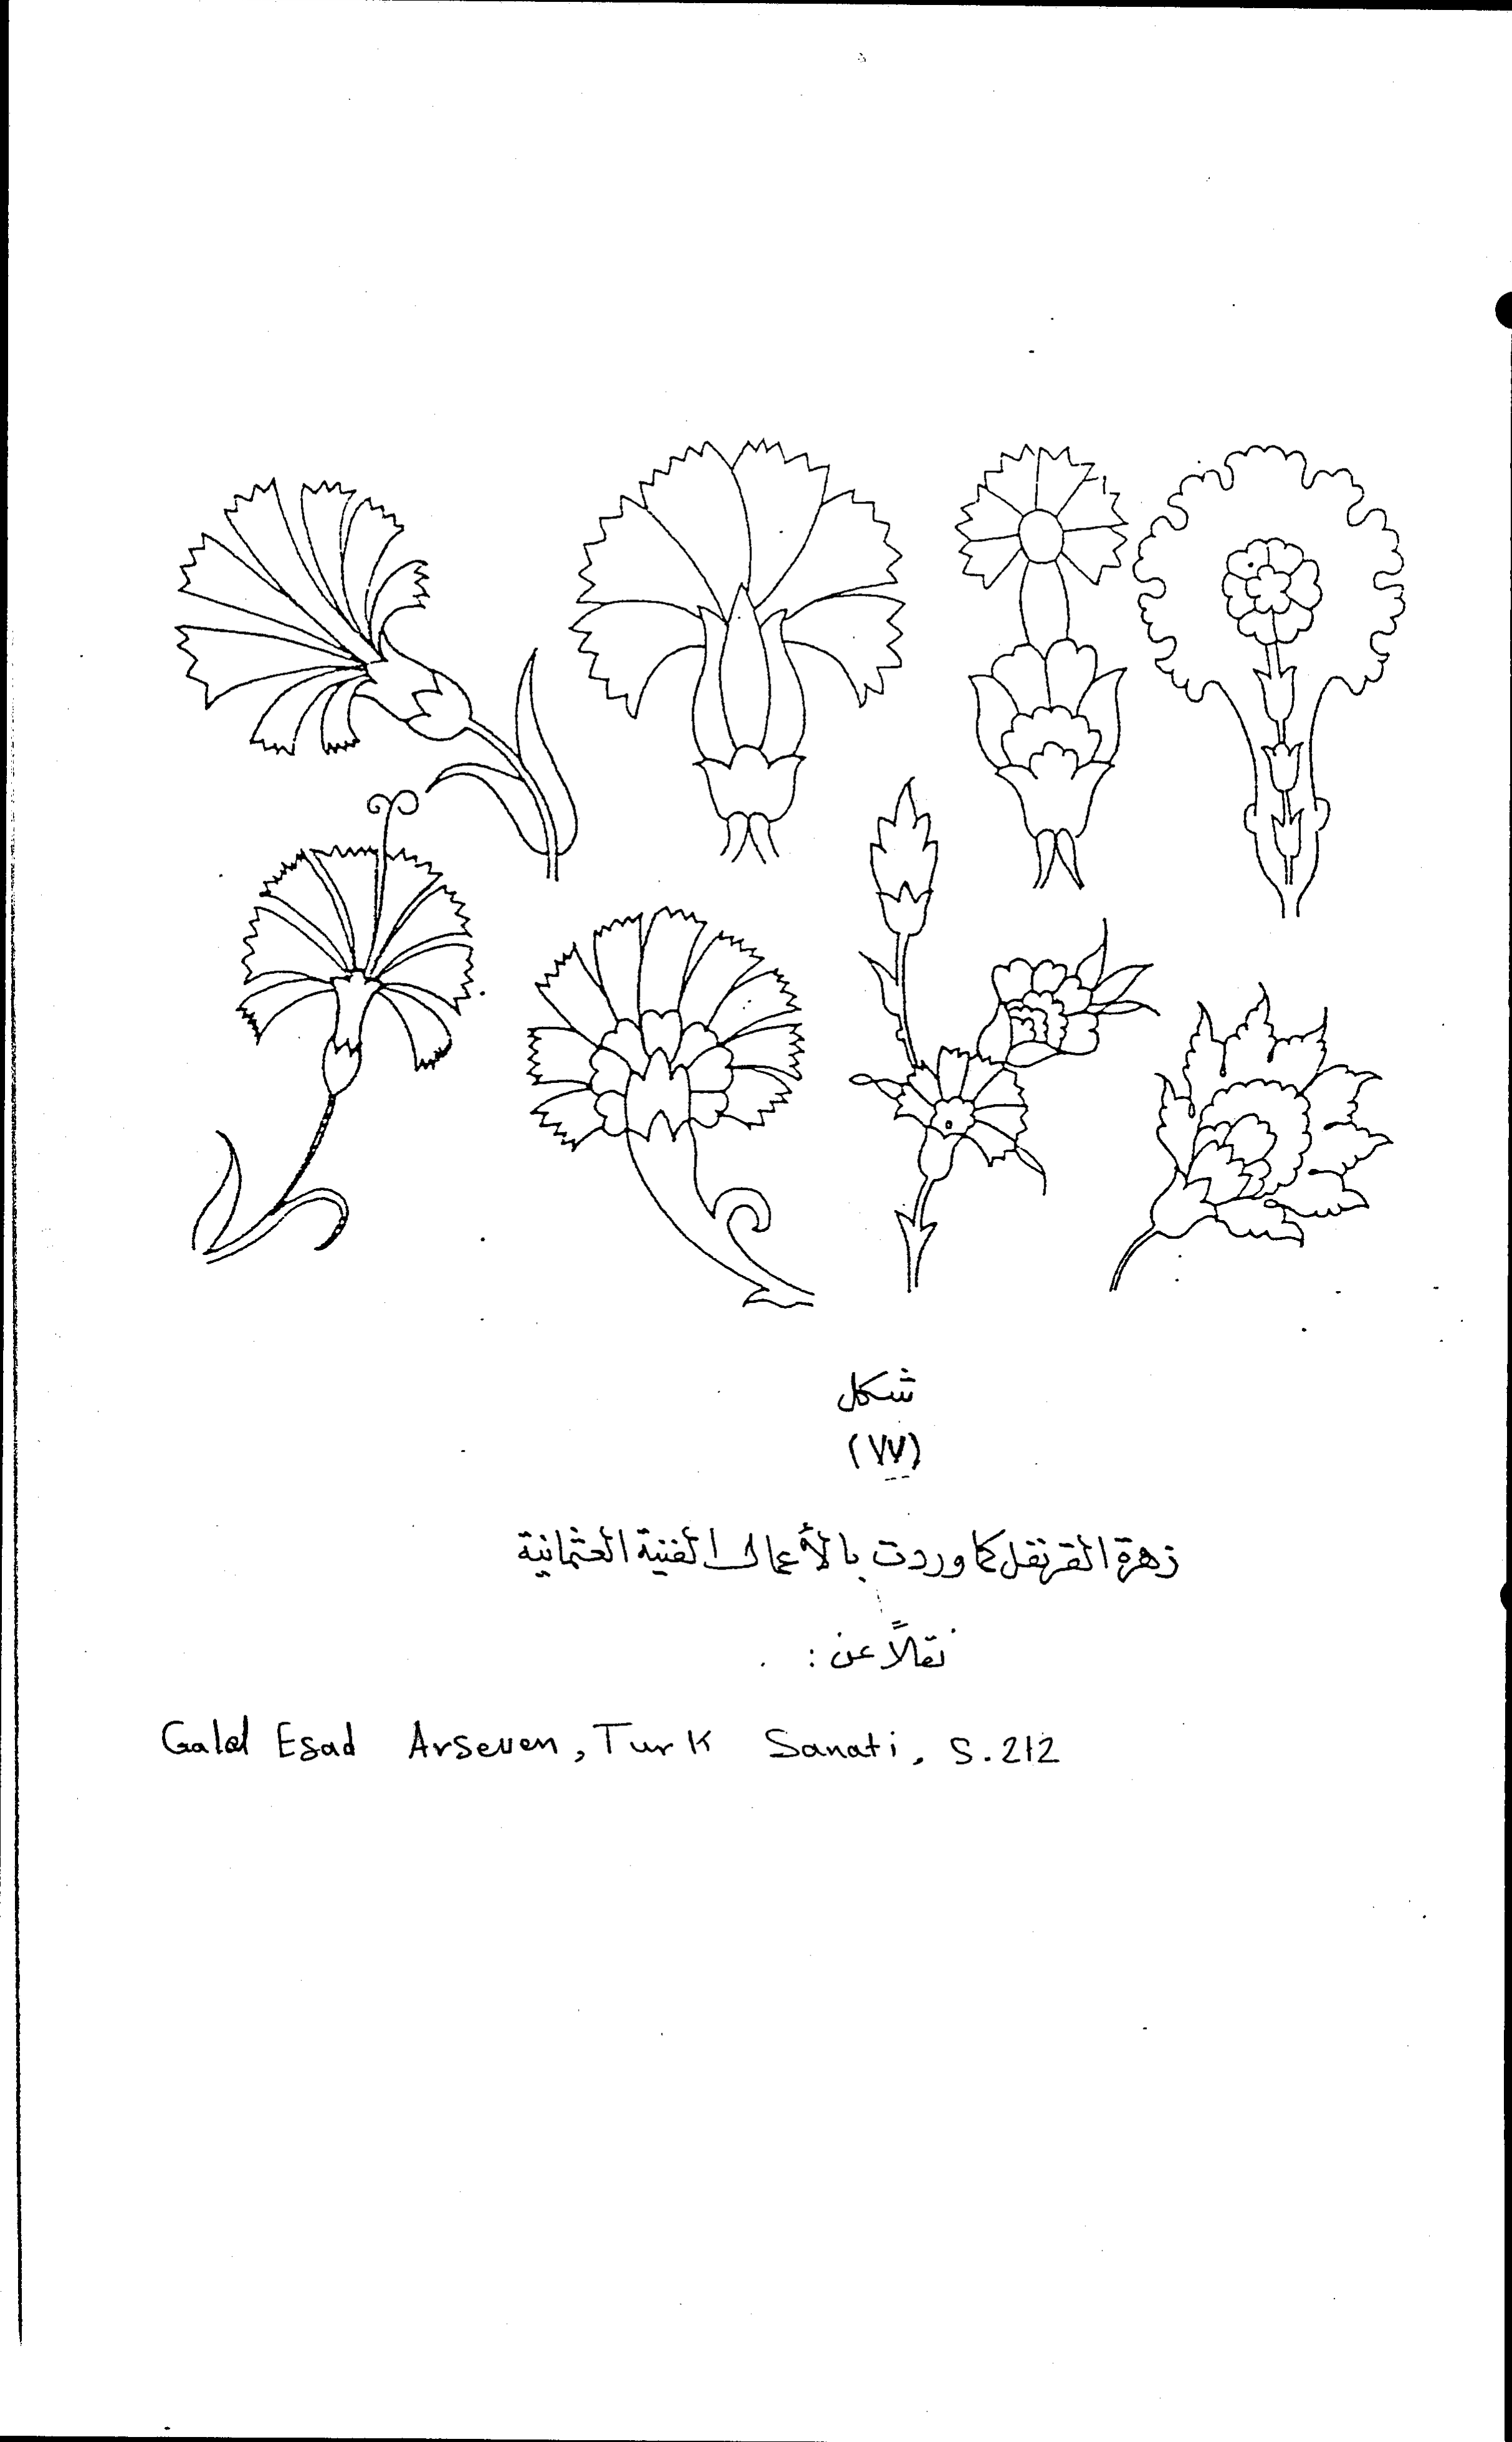 شكل
(٧٧)
زهرة القرنفل كما وردت بالأعمال الفنية العثمانية
نقلاً عن :
Galal Esad Arseven, Turk Sanati, S.212